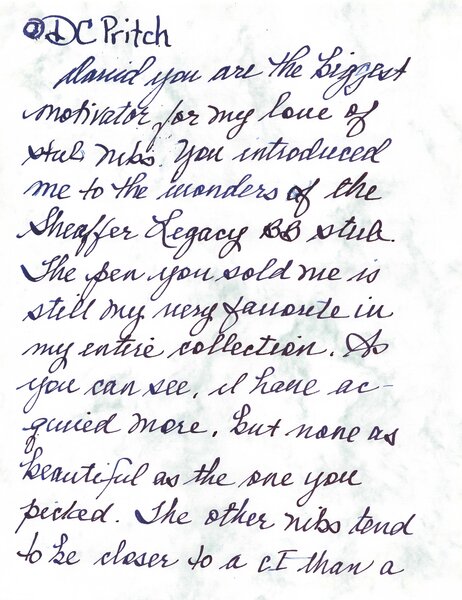 @DCPritch
David you are the biggest
motivator for my love of
stub nibs. You introduced
me to the wonders of the
Sheaffer Legacy BB stub.
The pen you sold me is
still my very favorite in
my entire collection. As
you can see, I have ac-
quired more, but none as
beautiful as the one you
picked. The other nibs tend
to be closer to a CI than a